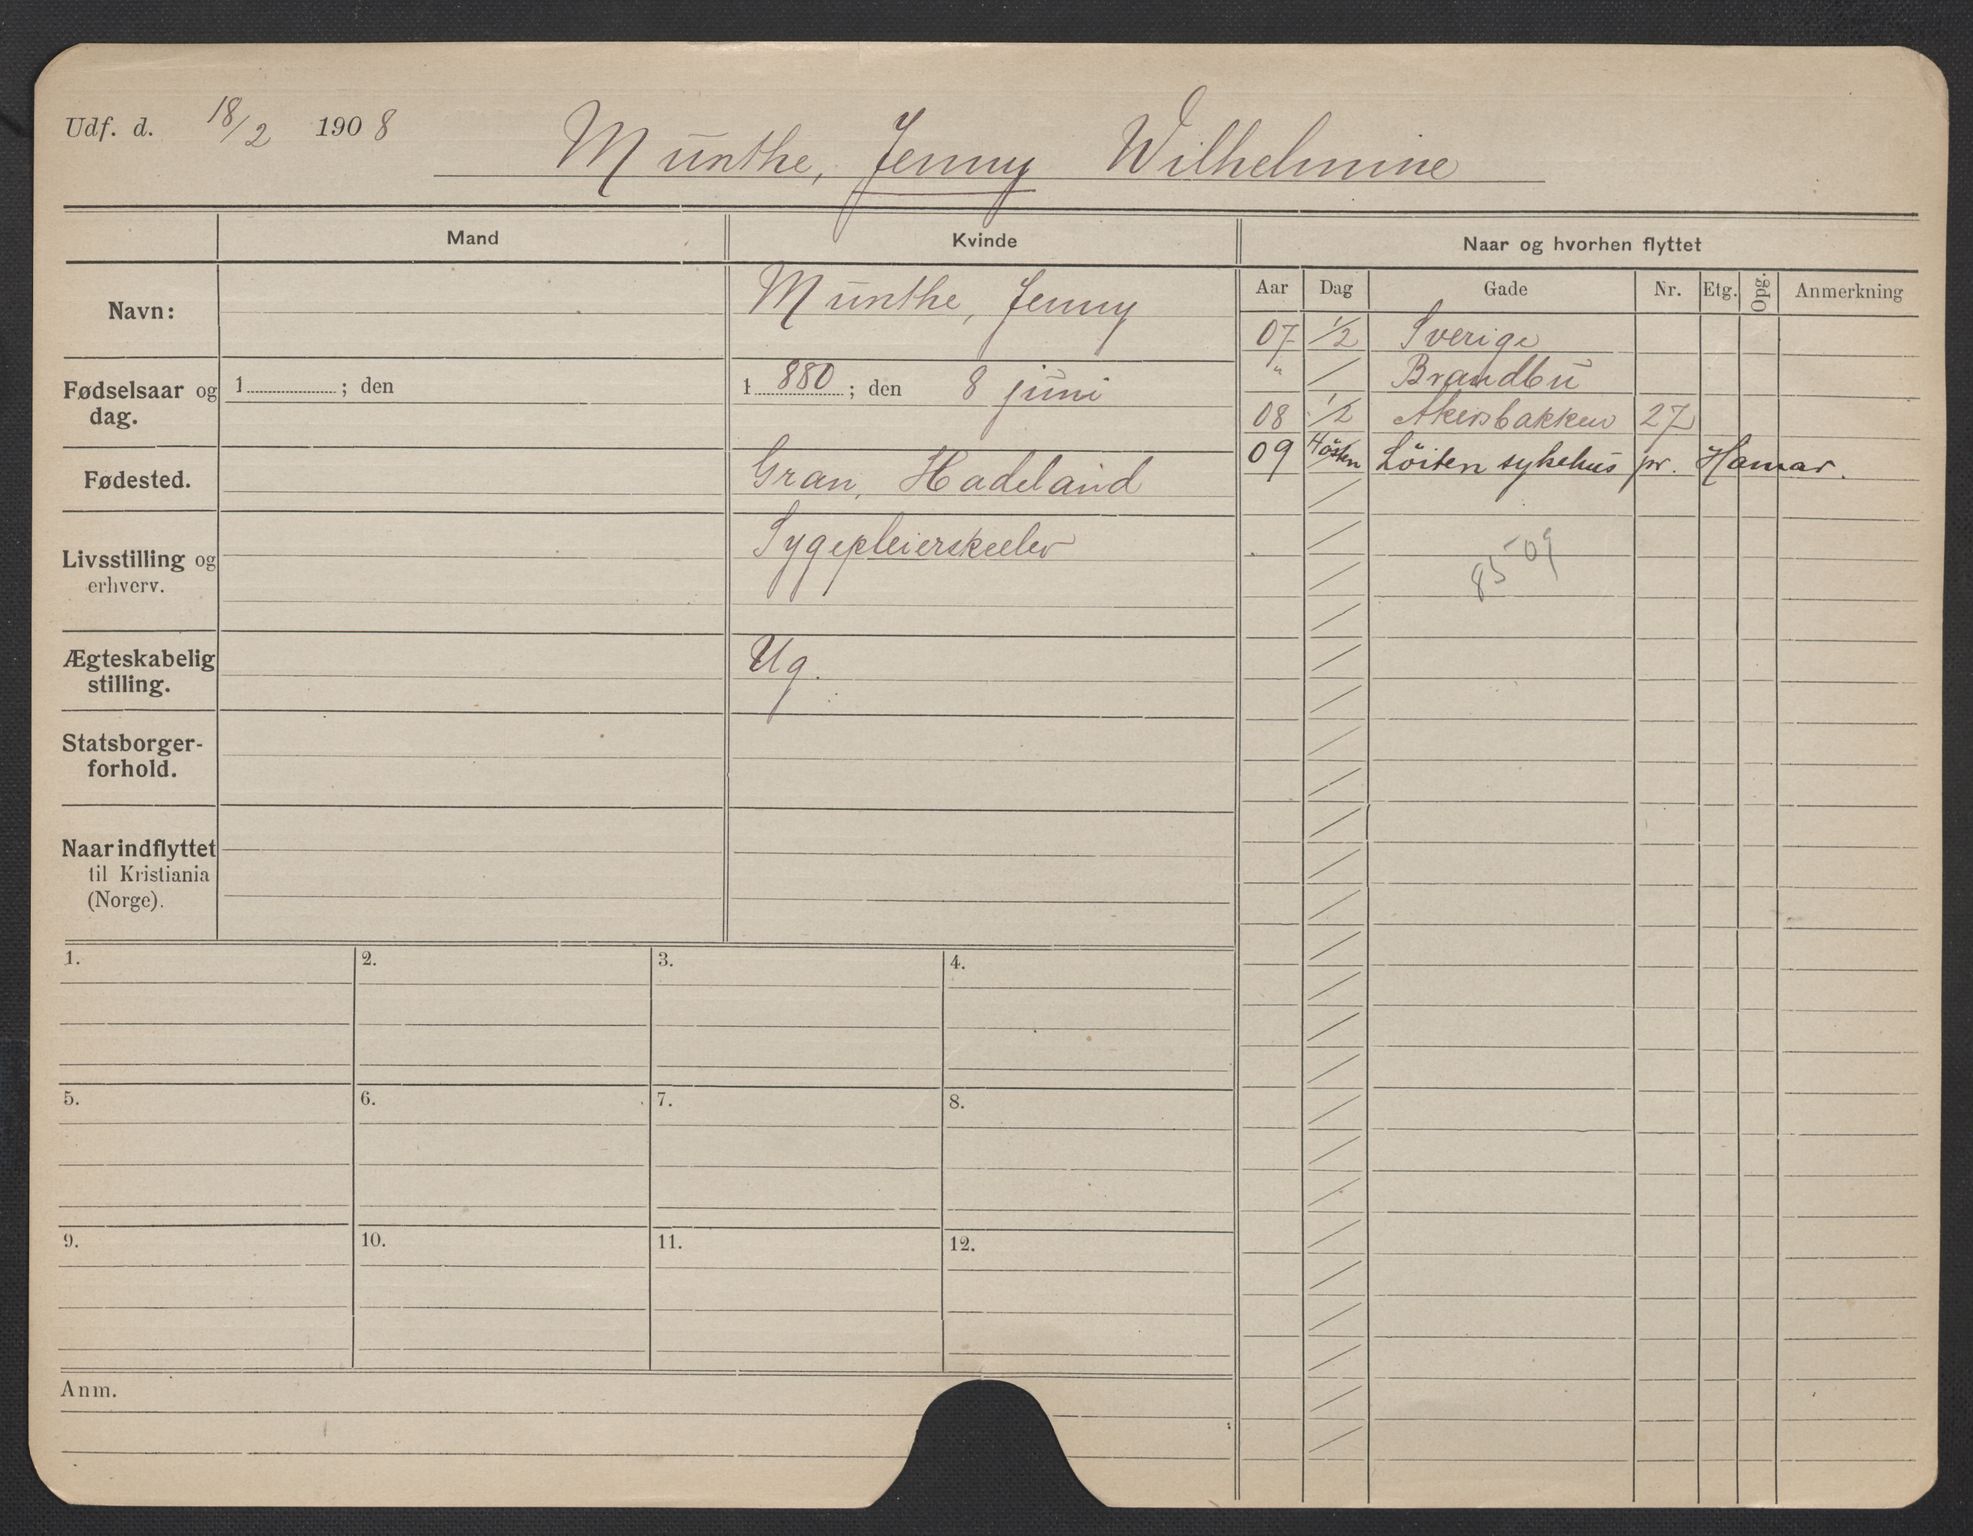 Udf. d. 18/2 1908 Munthe, Jenny Wilhelmine
Mand Kvinde Naar og hvorhen flyttet
Navn: Munthe, Jenny
Fødselsaar og dag. 1 ; den 1880 ; den 8 juni
Fødested. Gran, Hadeland
Livsstilling og erhverv. Sygepleierskeelev
Ægteskabelig stilling. Ug.
Statsborger-
forhold.
Naar indflyttet
til Kristiania
(Norge).
Aar Dag Gade Nr. Etg. Opg. Anmerkning
07 1/2 Sverige
" / Brandbu
08 1/2 Akersbakken 27
09 Høsten Löiten sykehus pr. Hamar.
85 09
1. 2. 3. 4.
5. 6. 7. 8.
9. 10. 11. 12.
Anm.